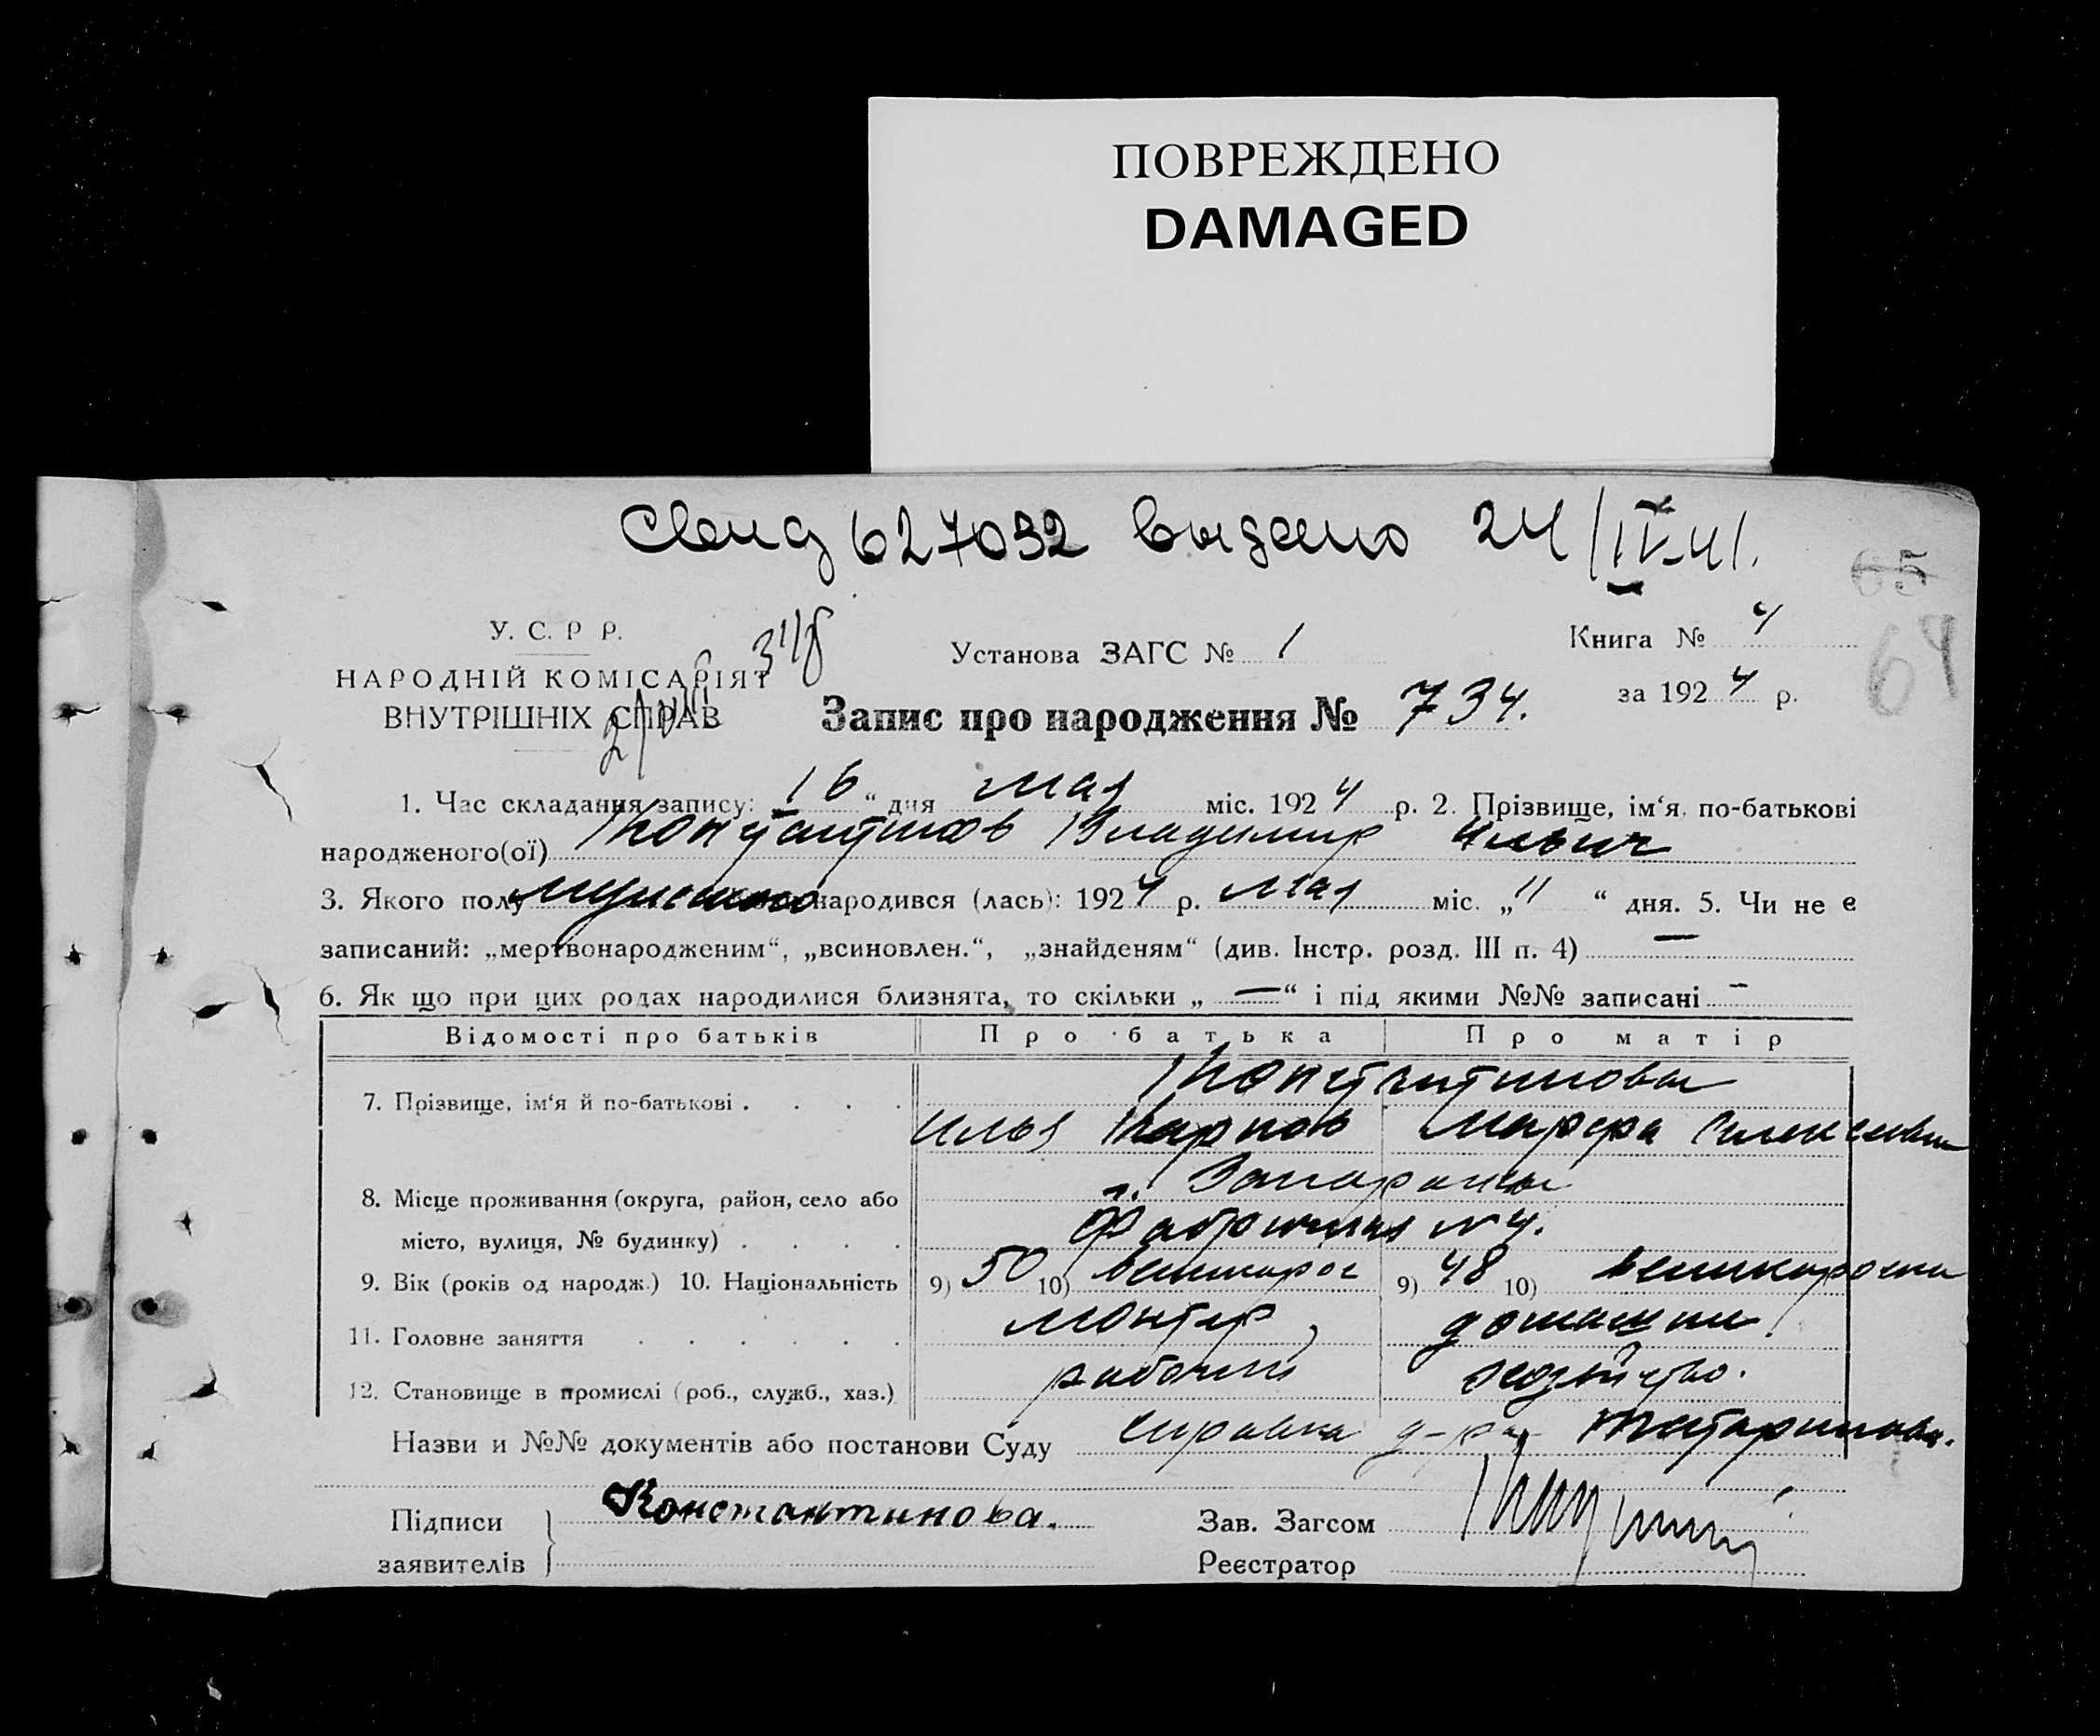 ПОВРЕЖДЕНО
DAMAGED
627032 выдано 24/IV-41.
65
64
У. С. Р Р.
НАРОДНІЙ КОМІСАРІЯТ
ВНУТРІШНІХ СПРАВ
Установа ЗАГС № 1
Книга № 4
за 1924 р.
Запис про народження № 734.
1. Час складання запису: 16 “ дня мая міс. 1924 р. 2. Прізвище, ім‘я, по-батькові
народженого(ої) Константинов Владимир Ильич
3. Якого полу народився (лась): 1924 р. мая міс. „11 “ дня. 5. Чи не є
записаний: „мертвонародженим“, „всиновлен.“, „знайденям“ (див. Інстр. розд. III п. 4) —
6. Як що при цих родах народилися близнята, то скільки „ — “ і під якими №№ записані —
Відомості про батьків Про батька Про матір
7. Прізвище, ім‘я й по-батькові . . . . Константиновы
Илья Карпов Марфа
8. Місце проживання (округа, район, село або
місто, вулиця, № будинку) . . . . Фабричная № 4.
9. Вік (років од народж.) 10. Національність 9) 50 10) великорос 9) 48 10)
11. Головне заняття . . . . . . монтер, домашн.
12. Становище в промислі (роб., служб., хаз.) рабочий хозяйство.
Назви и №№ документів або постанови Суду справка д-ра Татаринова.
Підписи
заявителів
Константинова.
Зав. Загсом
Реєстратор